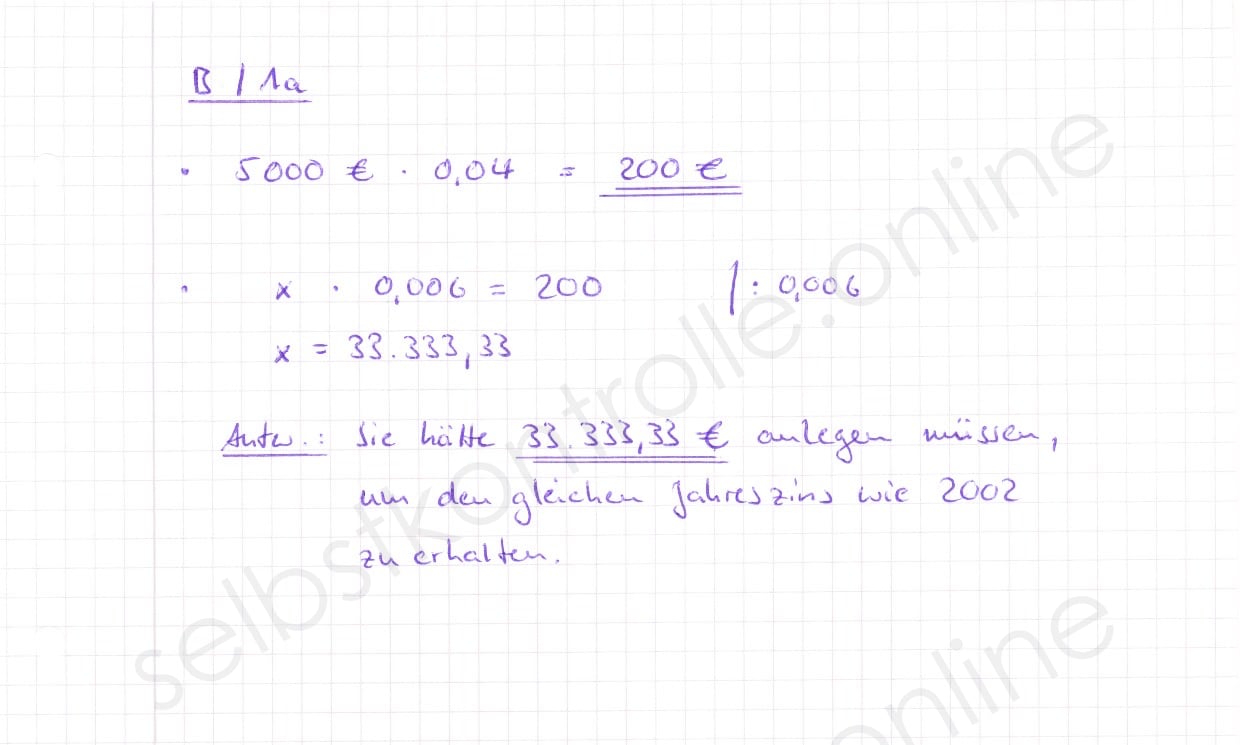 B / 1a
· 5000 € · 0,04 = 200 €
· x · 0,006 = 200 | : 0,006
x = 33.333,33
Antw.: Sie hätte 33.333,33 € anlegen müssen,
um den gleichen Jahreszins wie 2002
zu erhalten.
selbstkontrolle.online
online